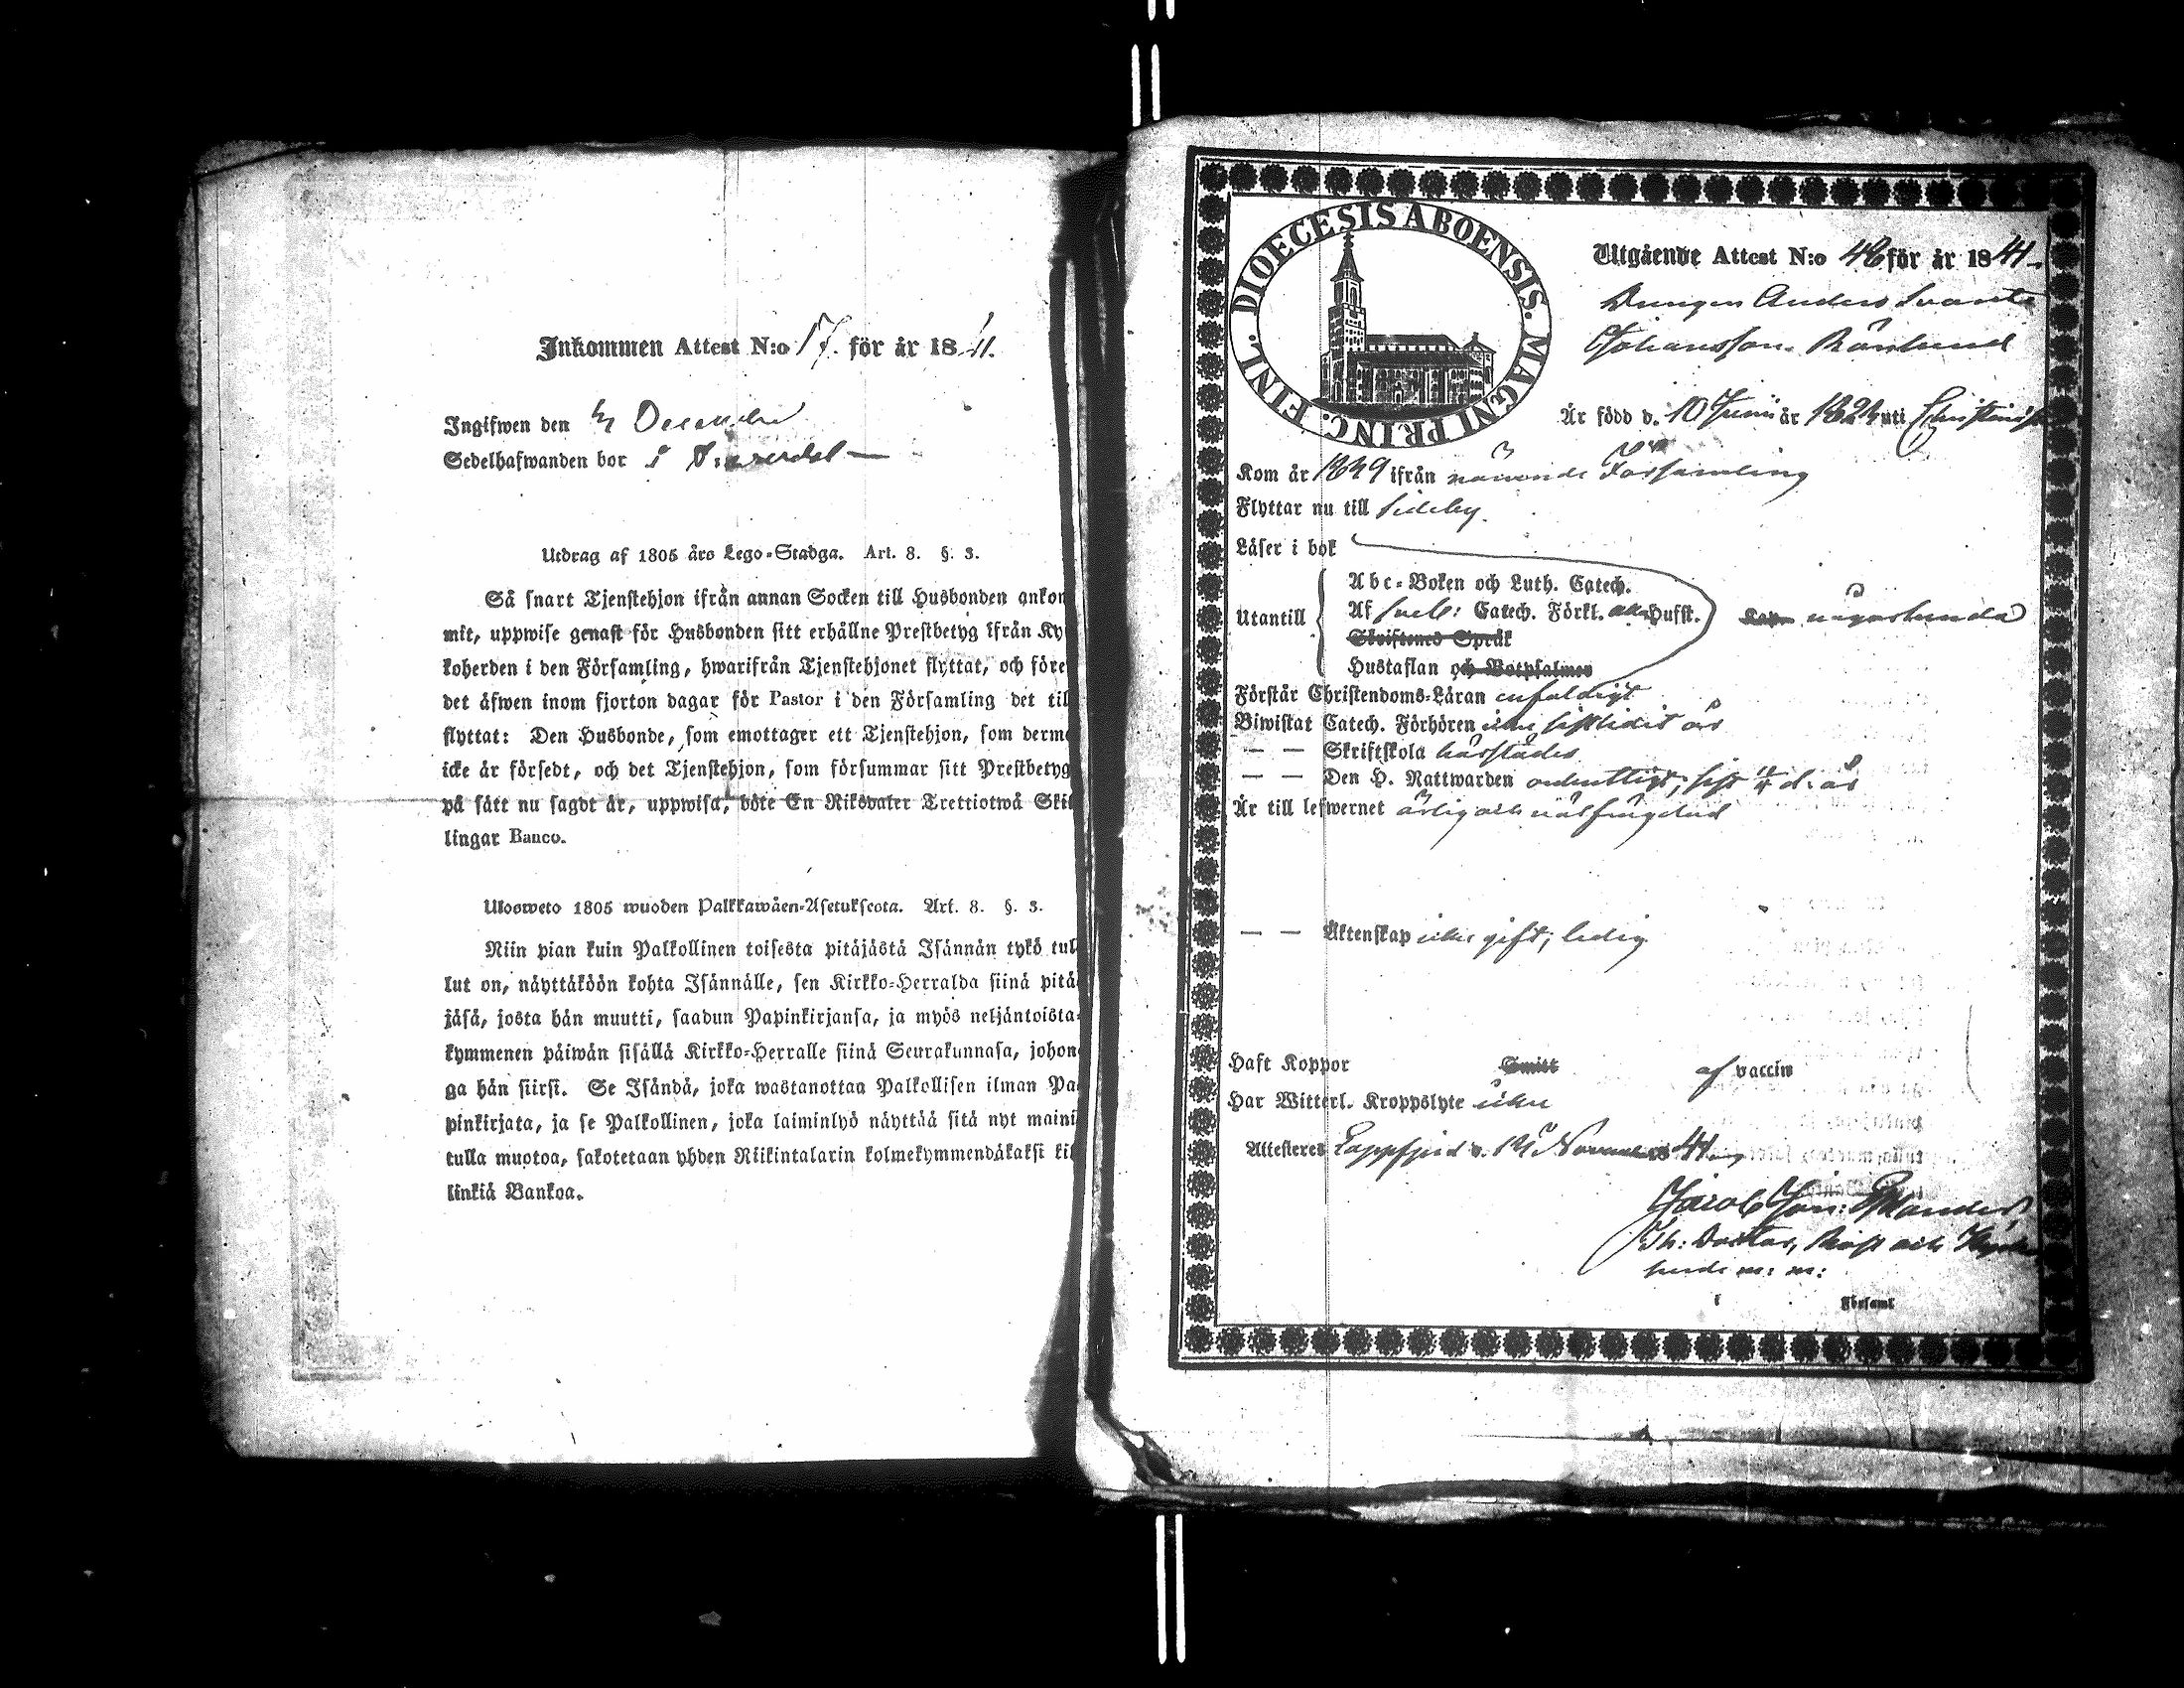 Inkommen Attest N:o 17. för år 1841.
Ingifwen den December
Sedelhafwanden bor i
Utdrag af 1805 års Lego-Stadga. Art. 8. §. 3.
Så snart Tjenstehjon ifrån annan Socken till Husbonden ankom
mit, uppwise genast för Husbonden sitt erhållne Prestbetyg ifrån Ky
koherden i den Församling, hwarifrån Tjenstehjonet flyttat, och före
det äfwen inom fjorton dagar för Pastor i den Församling det til
flyttat: Den Husbonde, som emottager ett Tjenstehjon, som derme
icke är försedt, och det Tjenstehjon, som försummar sitt Prestbetyg
på sätt nu sagdt är, uppwisa, böte En Riksdaler Trettiotwå Skil
lingar Banco.
Ulosweto 1805 wuoden Palkkawäen-Asetuksesta. Art. 8. §. 3.
Niin pian kuin Palkollinen toisesta pitäjästä Isännän tykö tul
lut on, näyttäköön kohta Isännälle, sen Kirkko-Herralda siinä pitä
jäsä, josta hän muutti, saadun Papinkirjansa, ja myös neljäntoista-
kymmenen päiwän sisällä Kirkko-Herralle siinä Seurakunnasa, johon
ga hän siirsi. Se Isändä, joka wastanottaa Palkollisen ilman Pa
pinkirjata, ja se Palkollinen, joka laiminlyö näyttää sitä nyt maini
tulla muotoa, sakotetaan yhden Riikintalarin kolmekymmendäkaksi kil
linkiä Bankoa.
DIOECESIS ABOENSIS. MAGNI PRINC. FINL.
Utgående Attest N:o 48 för år 1841.
Drengen Anders Svante
Johansson Rönlund
Är född d. 10 Junii år 1824 uti
Kom år 1839 ifrån Församling
Flyttar nu till Sideby.
Läser i bok
Abc-Boken och Luth. Catech.
Utantill Af Sveb: Catech. Förkl. Hufst. någorlunda
Skriftenes Språk
Hustaflan och Botpsalmen
Förstår Christendoms-Läran enfaldigt
Biwistat Catech. Förhören sistledit år
— — Skriftskola härstädes
— — Den H. Nattwarden ordentligt, sist d. år
Är till lefwernet ärlig och välfrägdad
— — Äktenskap icke gift; ledig
Haft Koppor Smitt af vaccin
Har Witterl. Kroppslyte icke
Attesteres Lappfjerd d. 19 November 1841
Jacob Jon:
Th: Doctor, Prost och Kyrko
herde m: m:
i Församl